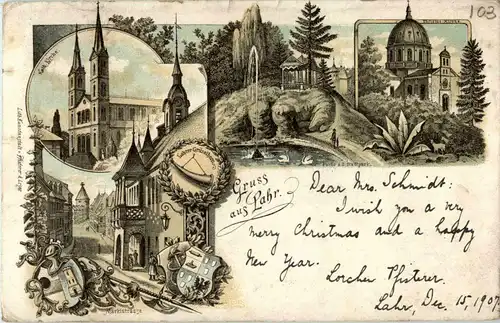 103
Kath. Kirche.
Gruss
aus Lahr.
Marktstrasse
Dear Mrs. Schmidt:
I wish you a very
merry Christmas and a happy
New Year.
Lorchen Pfisterer.
Lahr, Dec. 15, 1907.